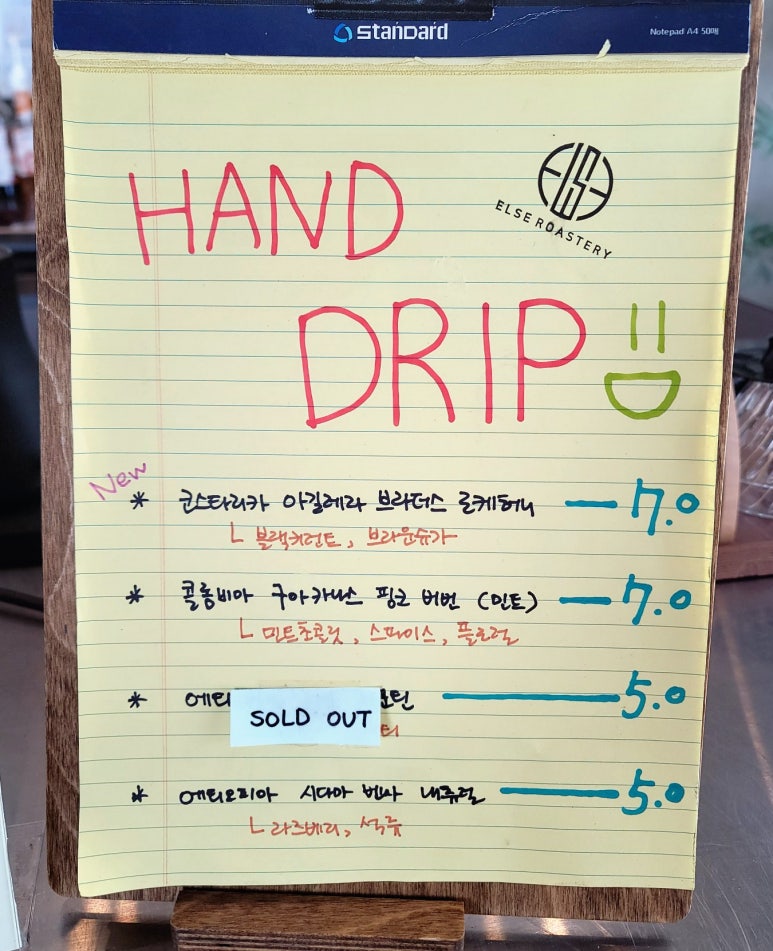 STANDARD
Notepad A4 50매
HAND
ELSE ROASTERY
DRIP
New
* 코스타리카 아킬레라 브라더스 로케허니 — 7.0
ㄴ 블랙커런트, 브라운슈가
* 콜롬비아 구아카나스 핑크 버번 (민트) — 7.0
ㄴ 민트초콜릿, 스파이스, 플로럴
* 에티 SOLD OUT 틴 — 5.0
티
* 에티오피아 시다마 벤사 내츄럴 — 5.0
ㄴ 라즈베리, 석류